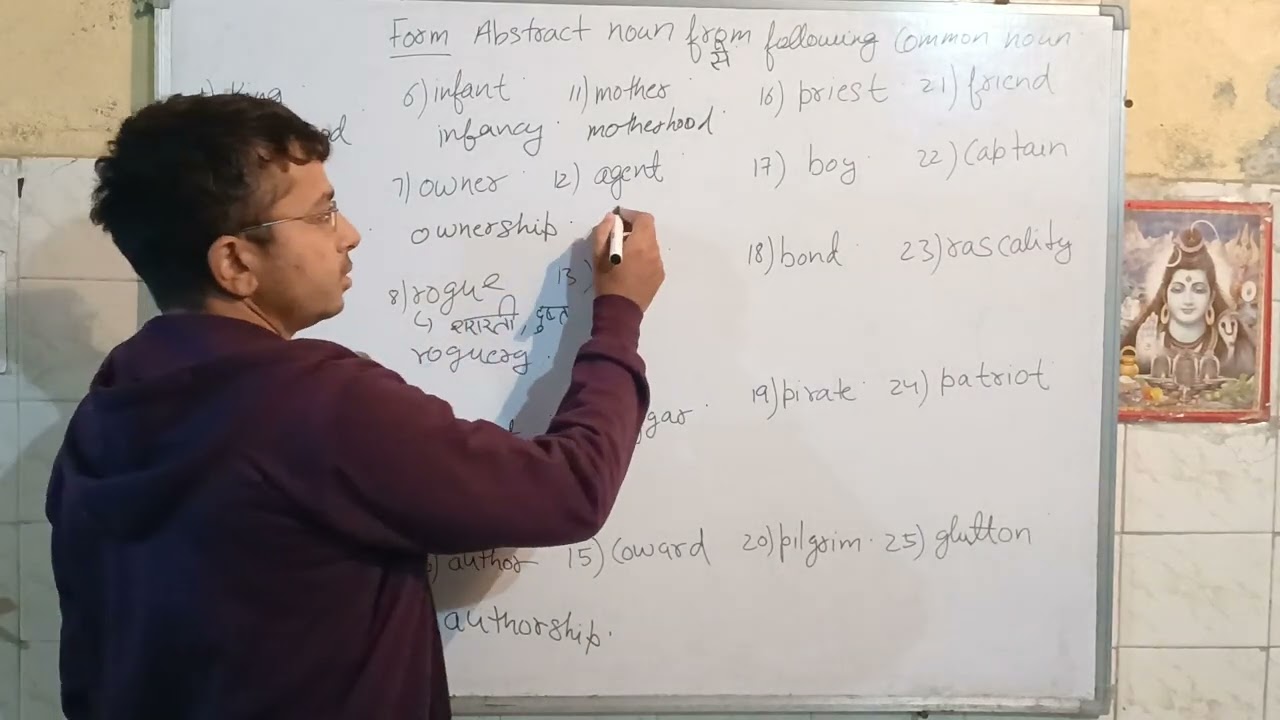 Form Abstract noun from following Common noun
से
King
6) infant
infancy
7) owner
ownership
8) rogue
↳ शरारती, दुष्ट
roguery
author
authorship
11) mother
motherhood
12) agent
13)
15) Coward
16) priest
17) boy
18) bond
19) pirate
20) pilgrim
21) friend
22) Captain
23) rascality
24) patriot
25) glutton